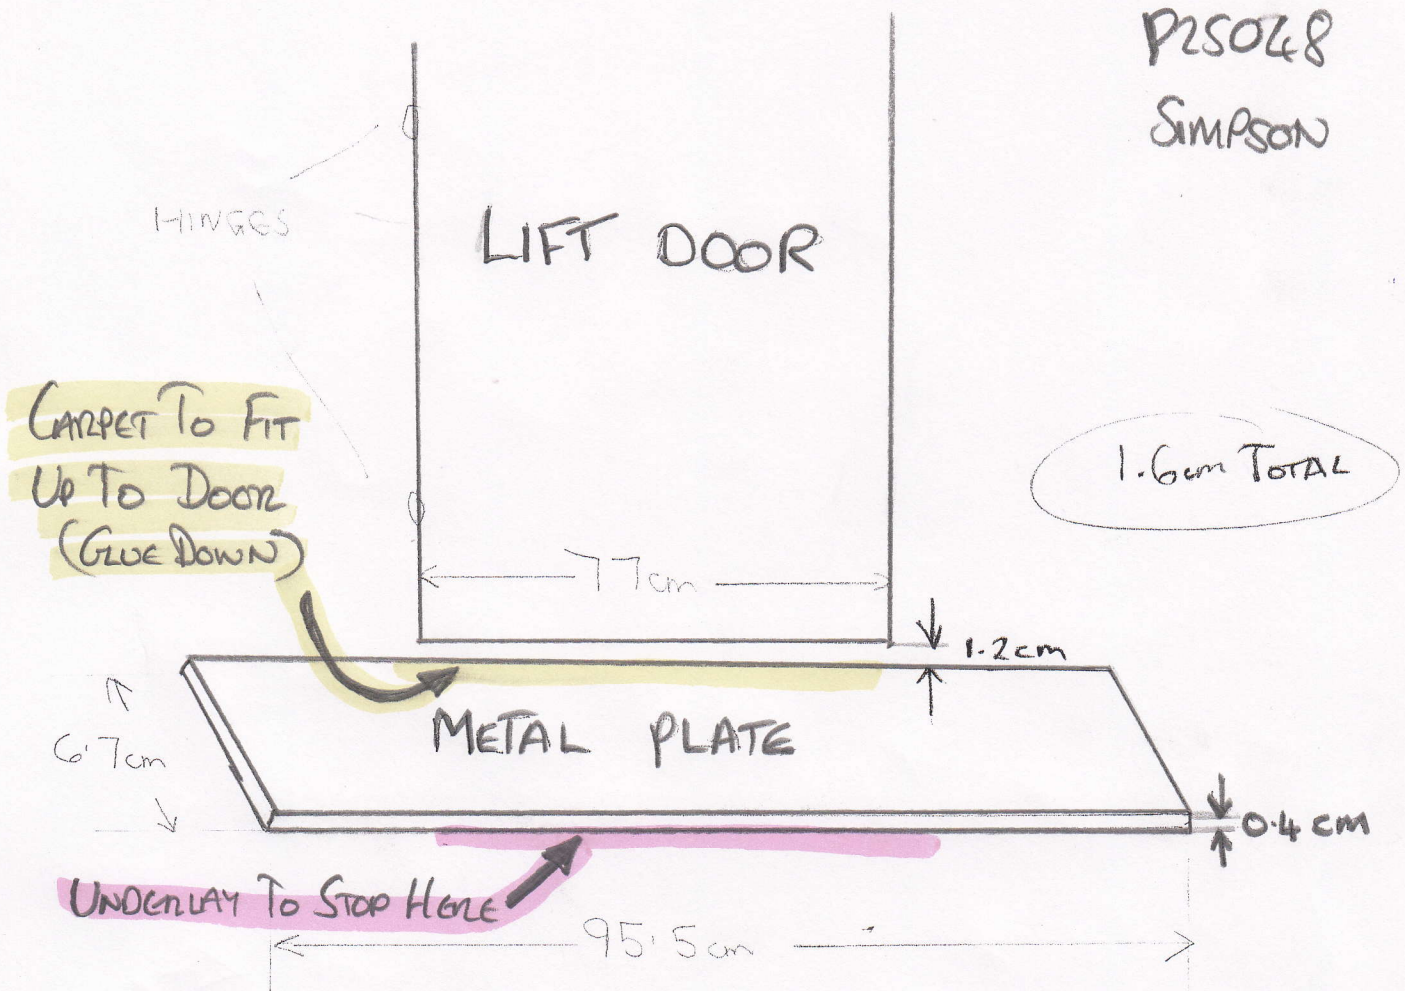 P25048
SIMPSON
HINGES
LIFT DOOR
CARPET TO FIT
UP TO DOOR
(GLUE DOWN)
1.6cm TOTAL
77cm
1.2cm
METAL PLATE
6.7cm
0.4 cm
UNDERLAY TO STOP HERE
95.5cm